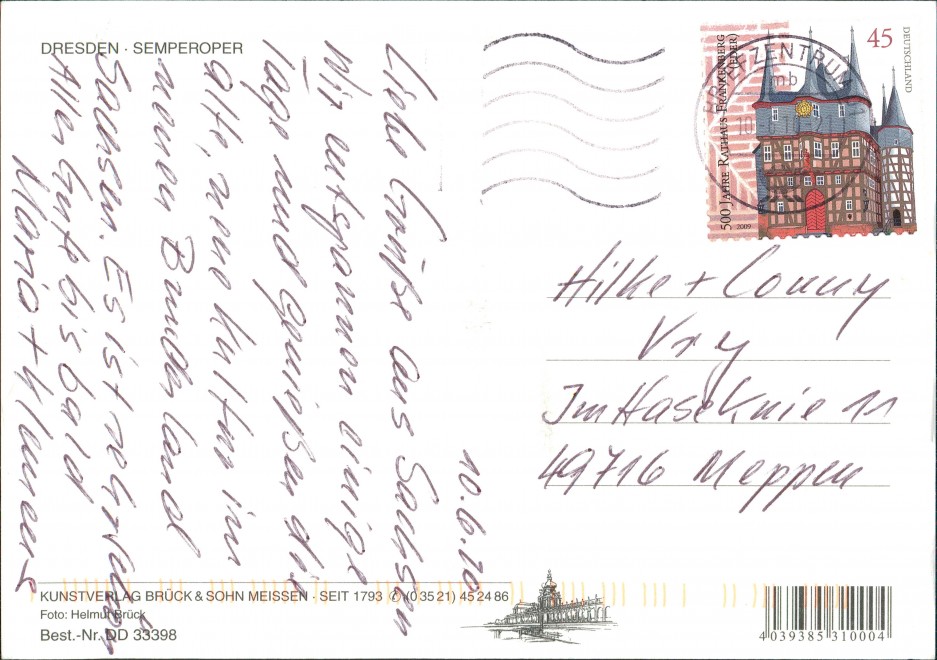 DRESDEN · SEMPEROPER
10.6.10
Liebe Grüße aus Sachsen
Wir entspannen einige
Tage und genießen die
alte, neue Kultur im
neuen Bundesland
Sachsen. Es ist sehr
Alles Gute bis bald
Maria + Klaus
500 JAHRE RATHAUS FRANKENBERG
(EDER)
2009
45
DEUTSCHLAND
BRIEFZENTRUM
Hilke + Conny
Vry
Im Haseknie 11
49716 Meppen
KUNSTVERLAG BRÜCK & SOHN MEISSEN · SEIT 1793 ✆ (0 35 21) 45 24 86
Foto: Helmut Brück
Best.-Nr. DD 33398
4 039385 310004